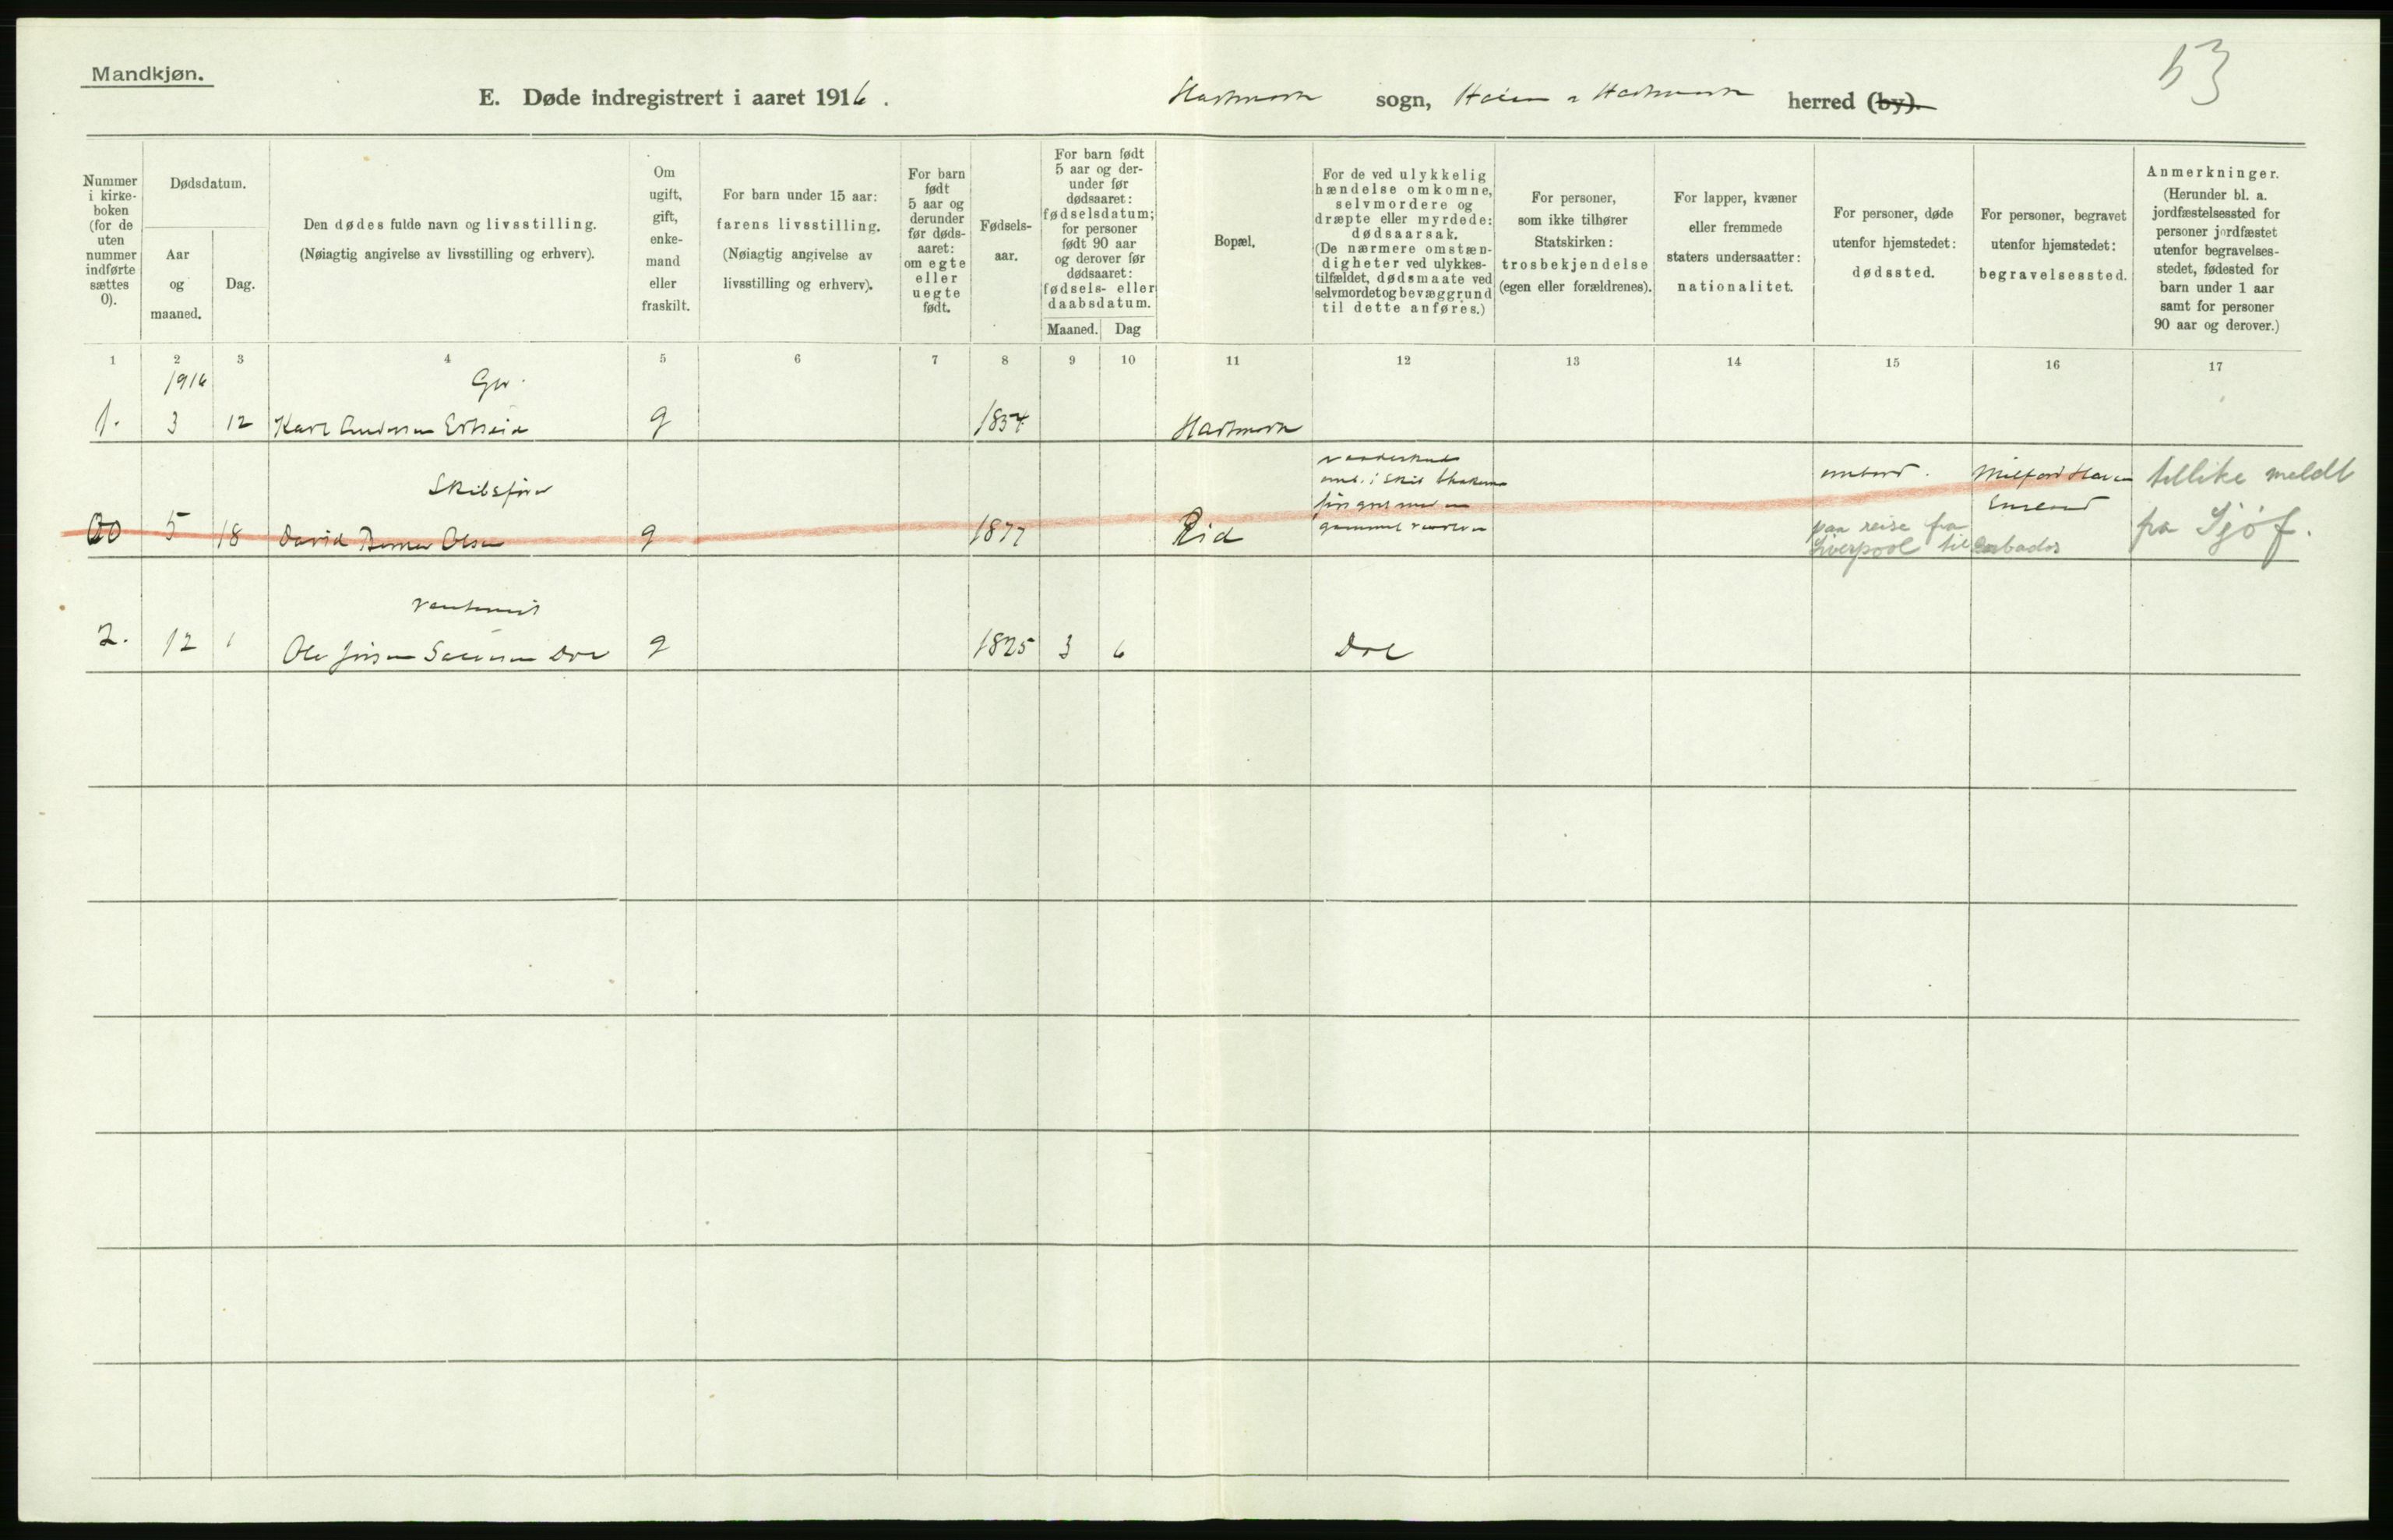 Mandkjøn.
53
E. Døde indregistrert i aaret 1916.
sogn, herred (by).
Nummer
i kirke-
boken
(for de
uten
nummer
indførte
sættes
0).
Dødsdatum.
Aar
og
maaned.
Dag.
Den dødes fulde navn og livsstilling.
(Nøiagtig angivelse av livsstilling og erhverv).
Om
ugift,
gift,
enke-
mand
eller
fraskilt.
For barn under 15 aar:
farens livsstilling.
(Nøiagtig angivelse av
livsstilling og erhverv).
For barn
født
5 aar og
derunder
før døds-
aaret:
om egte
eller
uegte
født.
Fødsels-
aar.
For barn født
5 aar og der-
under før
dødsaaret:
fødselsdatum;
for personer
født 90 aar
og derover før
dødsaaret:
fødsels- eller
daabsdatum.
Maaned. Dag
Bopæl.
For de ved ulykkelig
hændelse omkomne,
selvmordere og
dræpte eller myrdede:
dødsaarsak.
(De nærmere omstæn-
digheter ved ulykkes-
tilfældet, dødsmaate ved
selvmordet og bevæggrund
til dette anføres.)
For personer,
som ikke tilhører
Statskirken:
trosbekjendelse
(egen eller forældrenes).
For lapper, kvæner
eller fremmede
staters undersaatter:
nationalitet.
For personer, døde
utenfor hjemstedet:
dødssted.
For personer, begravet
utenfor hjemstedet:
begravelsessted.
Anmerkninger.
(Herunder bl. a.
jordfæstelsessted for
personer jordfæstet
utenfor begravelses-
stedet, fødested for
barn under 1 aar
samt for personer
90 aar og derover.)
1 2 3 4 5 6 7 8 9 10 11 12 13 14 15 16 17
1916
1. 3 12 Karl g 1854
Skibsfører
ombord. Milford Haven
tillike meldt
5 18 David Olsen g 1877 Eid
England
paa reise fra
Liverpool til Barbados
pa Sjøf.
2. 12 1 Ole g 1825 3 6